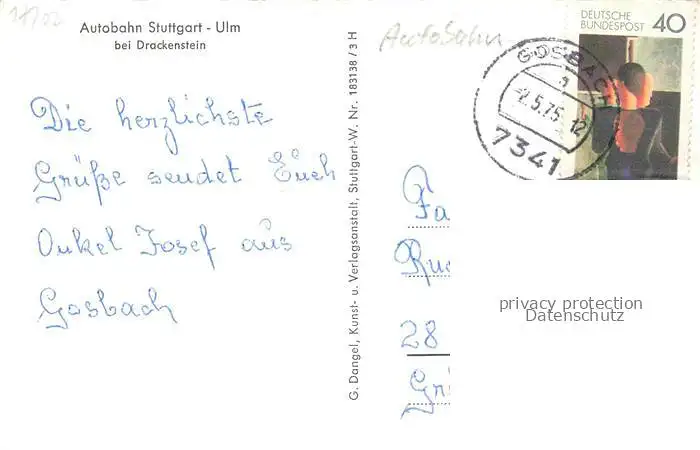 Autobahn Stuttgart - Ulm
bei Drackenstein
Die herzlichste
Grüße sendet Euch
Onkel Josef aus
Gosbach
G. Dangel, Kunst- u. Verlagsanstalt, Stuttgart-W. Nr. 183138 / 3 H
Autobahn
DEUTSCHE
BUNDESPOST
40
GOSBACH
-2.5.75.12
7341
Fa
Rue
28
Gri
privacy protection
Datenschutz